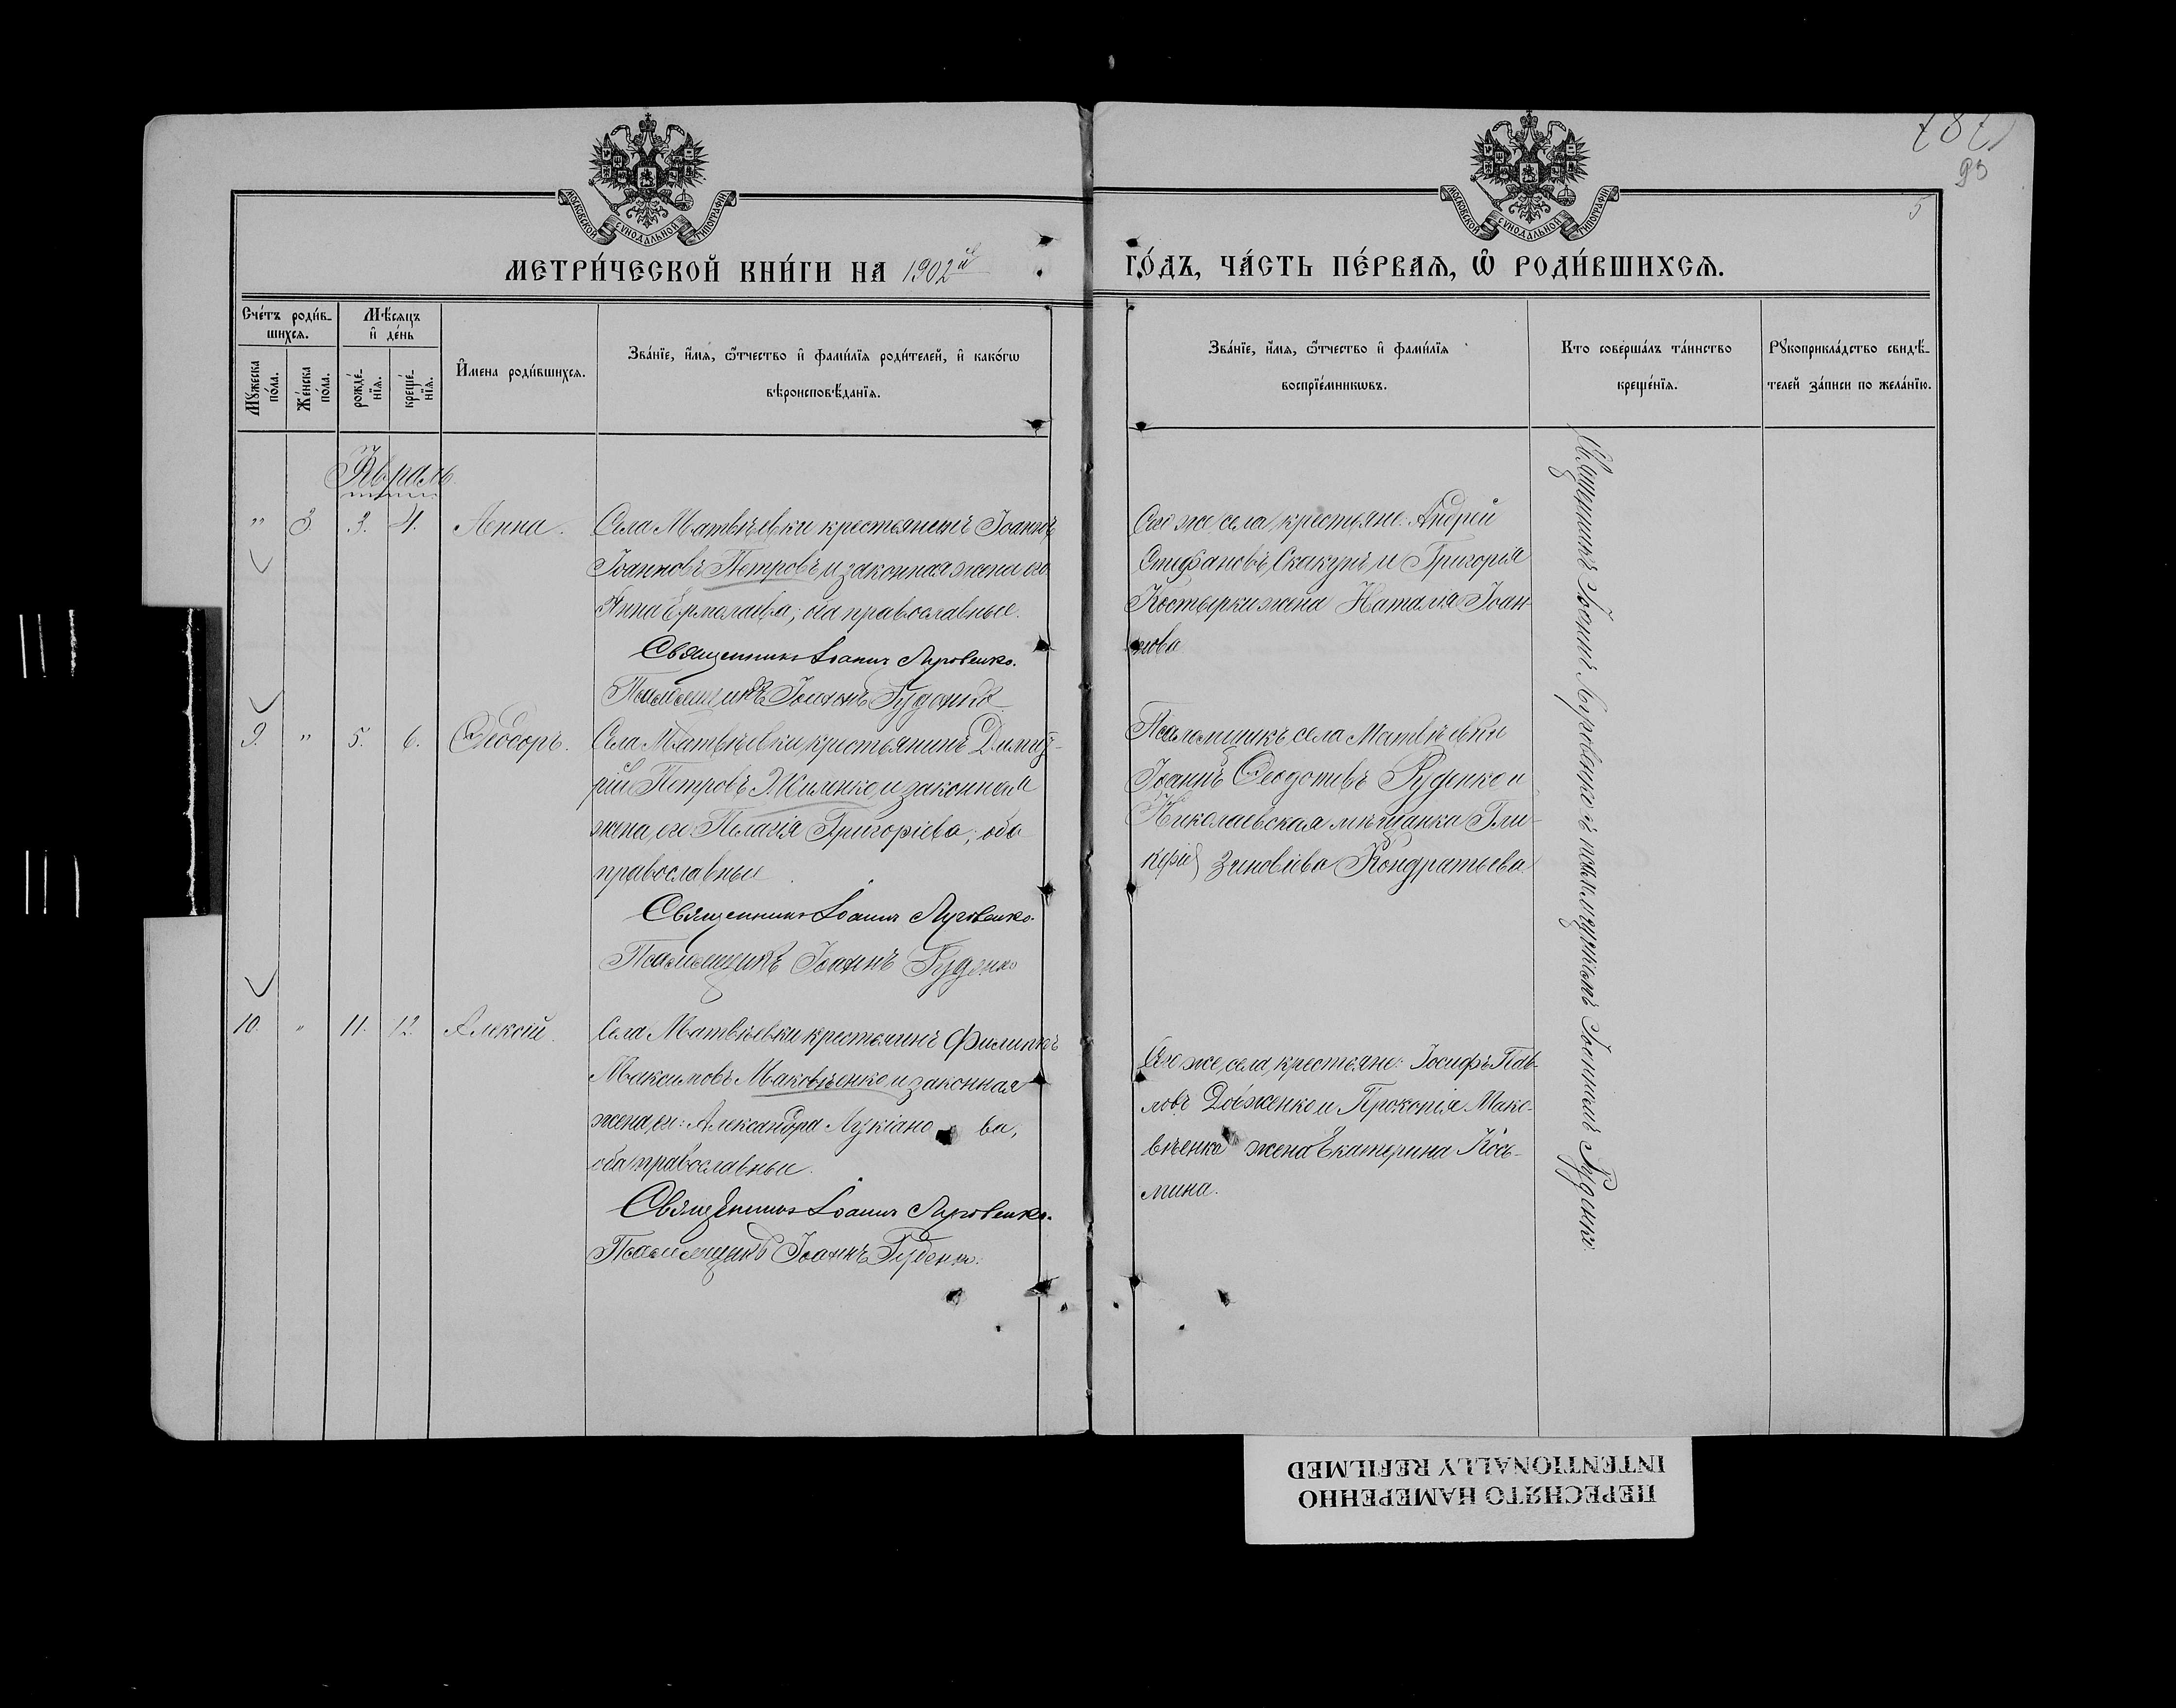 МОСКОВСКОЙ СѴНОДАЛЬНОЙ ТИПОГРАФІИ
МОСКОВСКОЙ СѴНОДАЛЬНОЙ ТИПОГРАФІИ
93
5
МЕТРИ́ЧЕСКОЙ КНИ́ГИ НА 1902й
ГО́ДЪ, ЧА́СТЬ ПЕ́РВАѦ, Ѡ҆ РОДИ́ВШИХСѦ.
Сче́тъ роди́в-
шихсѧ.
Мꙋ́жеска
по́ла.
Же́нска
по́ла.
Мѣ́сѧцъ
и҆ де́нь
рожде́-
нїѧ.
креще́-
нїѧ.
И҆́мена роди́вшихсѧ.
Зва́нїе, и҆́мѧ, ѻ҆́тчество и҆ фами́лїѧ роди́телей, и҆ како́гѡ
вѣроисповѣ́данїѧ.
Зва́нїе, и҆́мѧ, ѻ҆́тчество и҆ фами́лїѧ
воспрїе́мникѡвъ.
Кто соверша́лъ та́инство
креще́нїѧ.
Рꙋкоприкла́дство свидѣ́-
телей за́писи по жела́нїю.
Февраль
" 3. 3. 4. Анна. Села Матвѣевки крестьянинъ Іоаннъ
Іоанновъ Петровъ и законная жена его
Анна Ермолаева; оба православные.
Священникъ Іоаннъ Луговенко.
Псаломщикъ Іоаннъ Руденко
Того же села крестьяне: Андрей
Стефановъ Скакунъ и Григорія
Костырки жена Наталія Іоан-
нова
9. " 5. 6. Ѳеодоръ. Села Матвѣевки крестьянинъ Димит-
рій Петровъ Жиленко и законная
жена его Пелагія Григоріева; оба
православные
Священникъ Іоаннъ Луговенко.
Псаломщикъ Іоаннъ Руденко
Псаломщикъ села Матвѣевки
Іоаннъ Ѳеодотовъ Руденко и
Николаевская мѣщанка Гли-
керія Зиновіева Кондратьева.
10. " 11. 12. Алексій. Села Матвѣевки крестьянинъ Филиппъ
Максимовъ Маковѣенко и законная
жена его: Александра Лукіано ва,
оба православные.
Священникъ Іоаннъ Луговенко.
Псаломщикъ Іоаннъ Руденко.
Того же села крестьяне: Іосифъ Пав-
ловъ Довженко и Прокопія Мако-
вѣенка жена Екатерина Кось-
мина.
Священникъ Іоаннъ Луговенко съ псаломщикомъ Іоанномъ Руденко.
ПЕРЕСНЯТО НАМЕРЕННО
INTENTIONALLY REFILMED